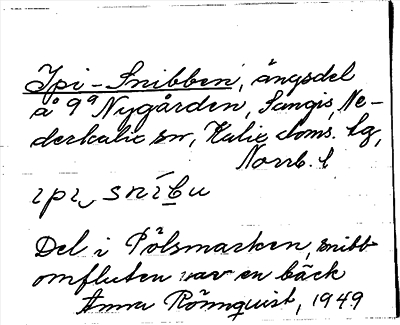 Ipi-Snibben, ängsdel
å 9ᵃ Nygården, Sangis, Ne-
derkalix sn, Kalix doms. lg,
Norrb. l
ipi, snibu
Del i Pölsmarken, snibb
omfluten var en bäck
Anna Rönnquist, 1949